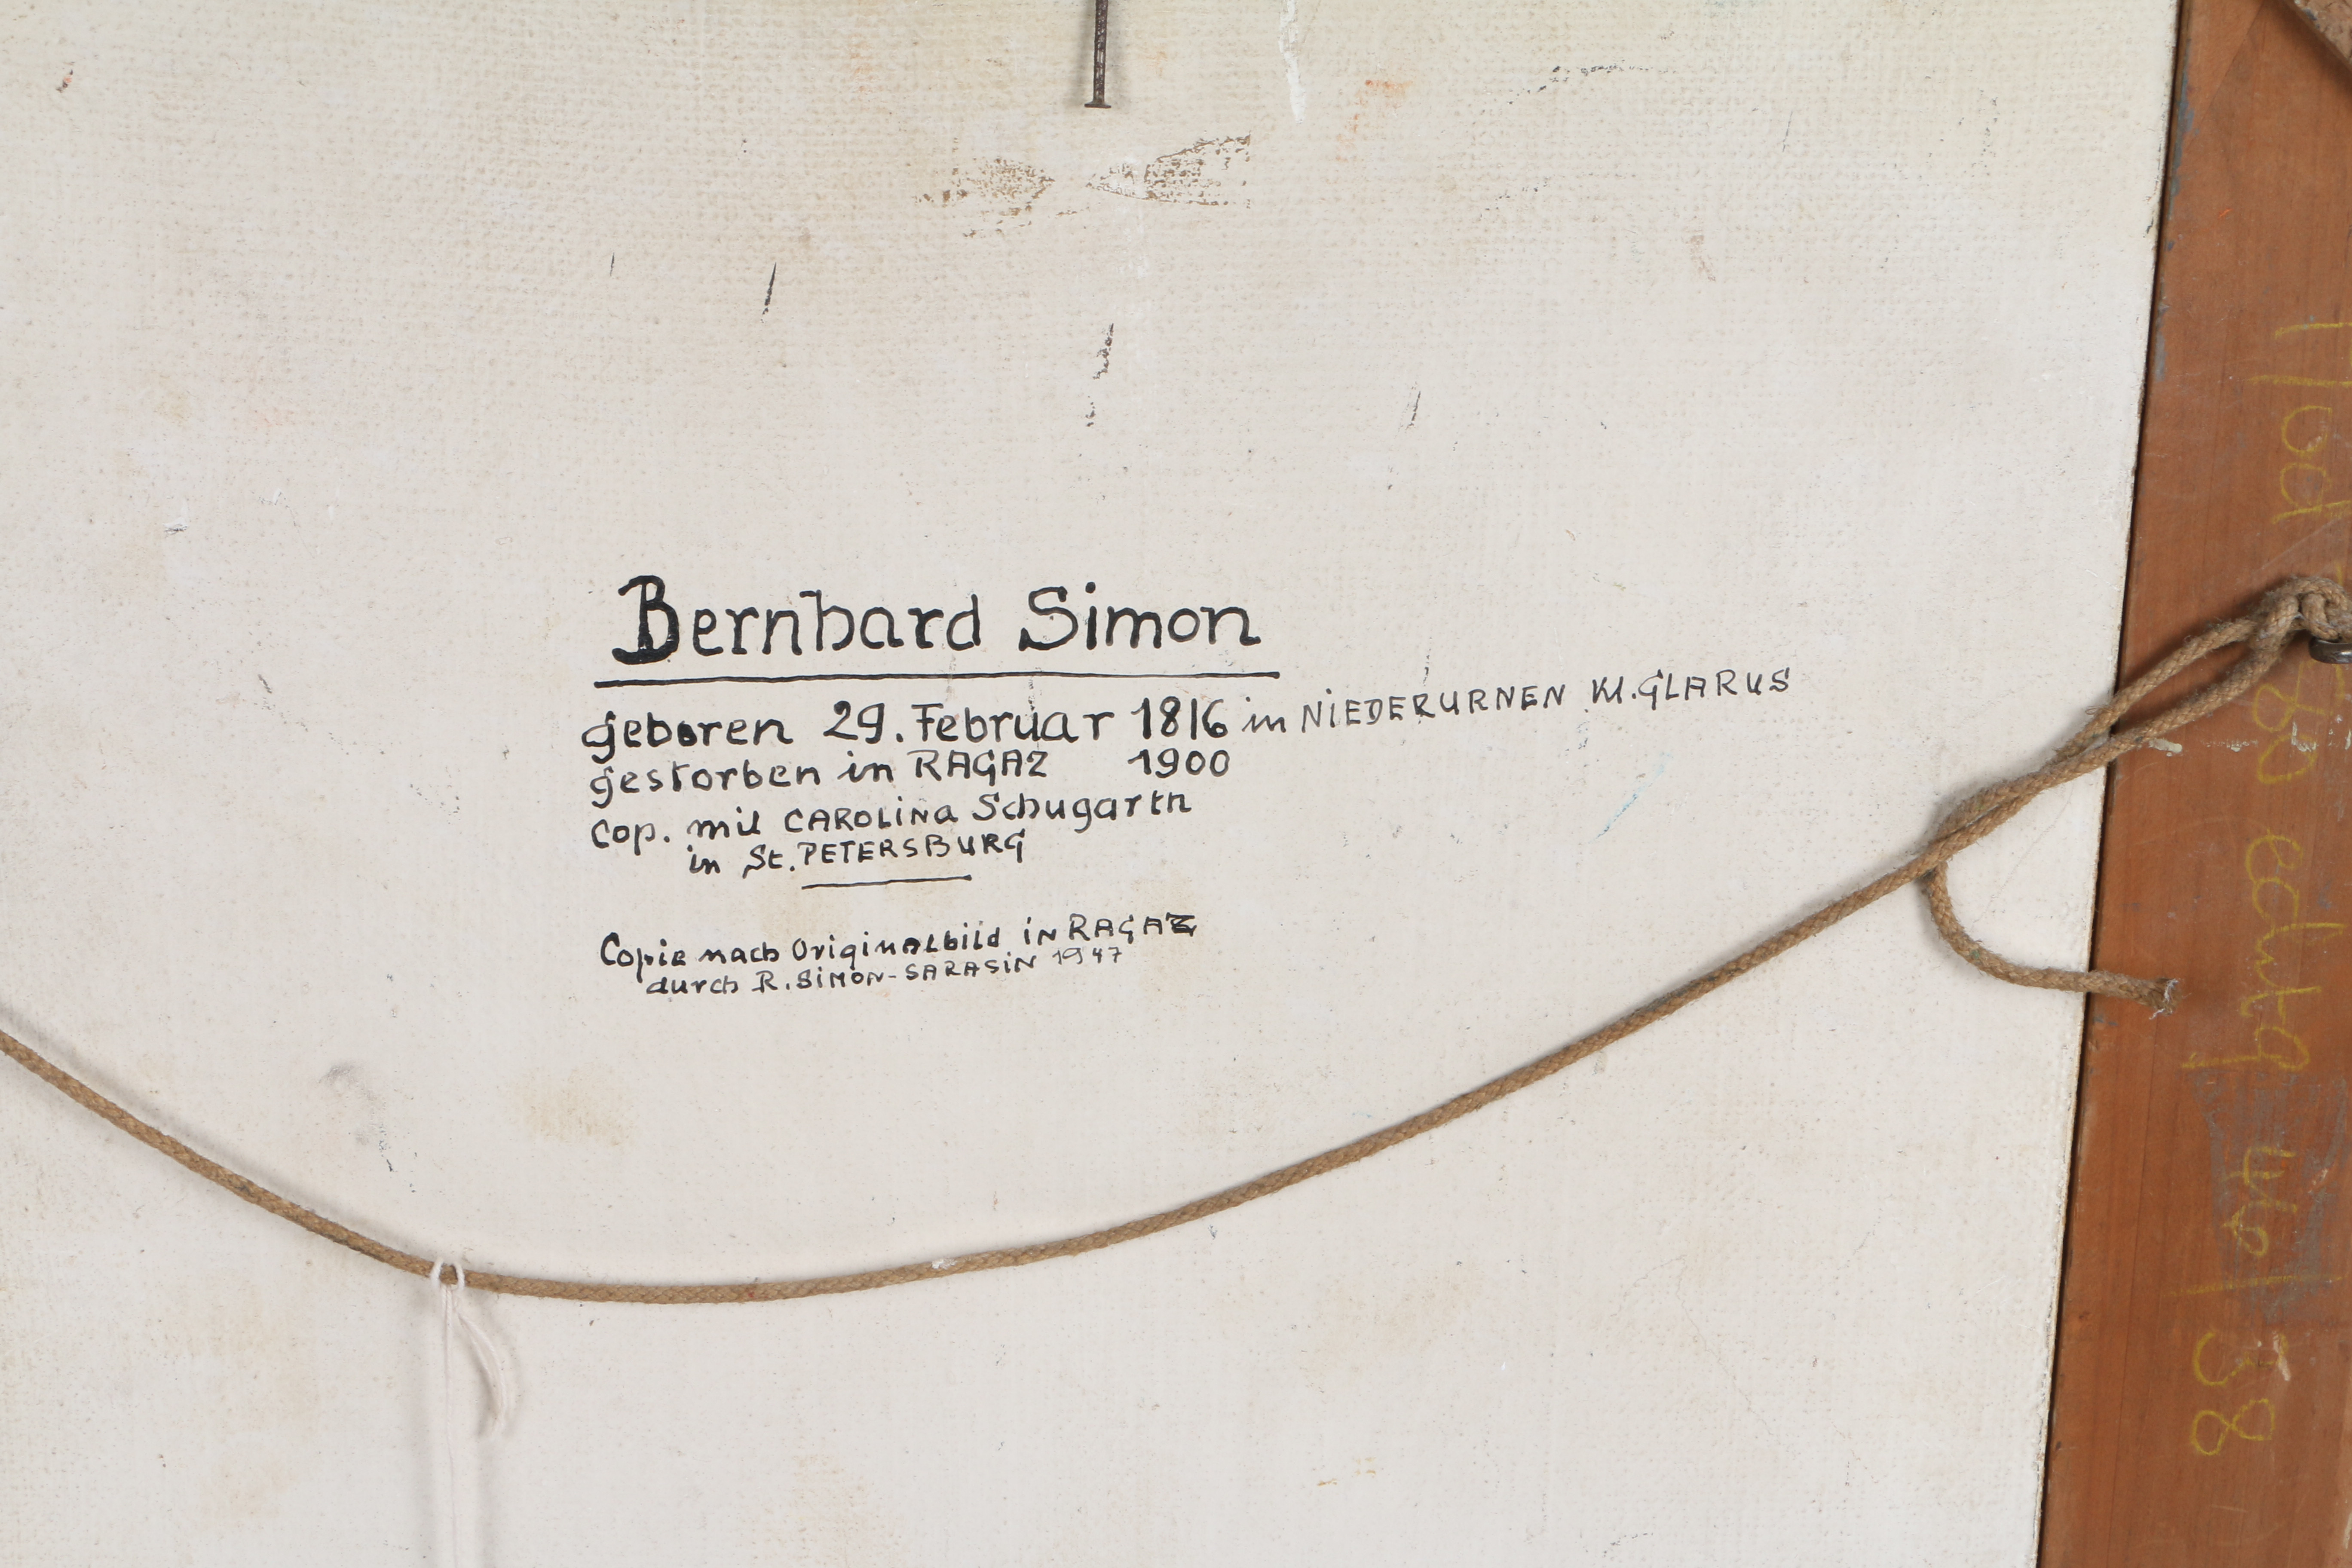 Bernhard Simon
geboren 29. Februar 1816 in NIEDERURNEN Kt. GLARUS
gestorben in RAGAZ 1900
cop. mit CAROLINA Schugarth
in St. PETERSBURG
Copie nach Originalbild in RAGAZ
durch R. SIMON-SARASIN 1947
echtg 40 / 38